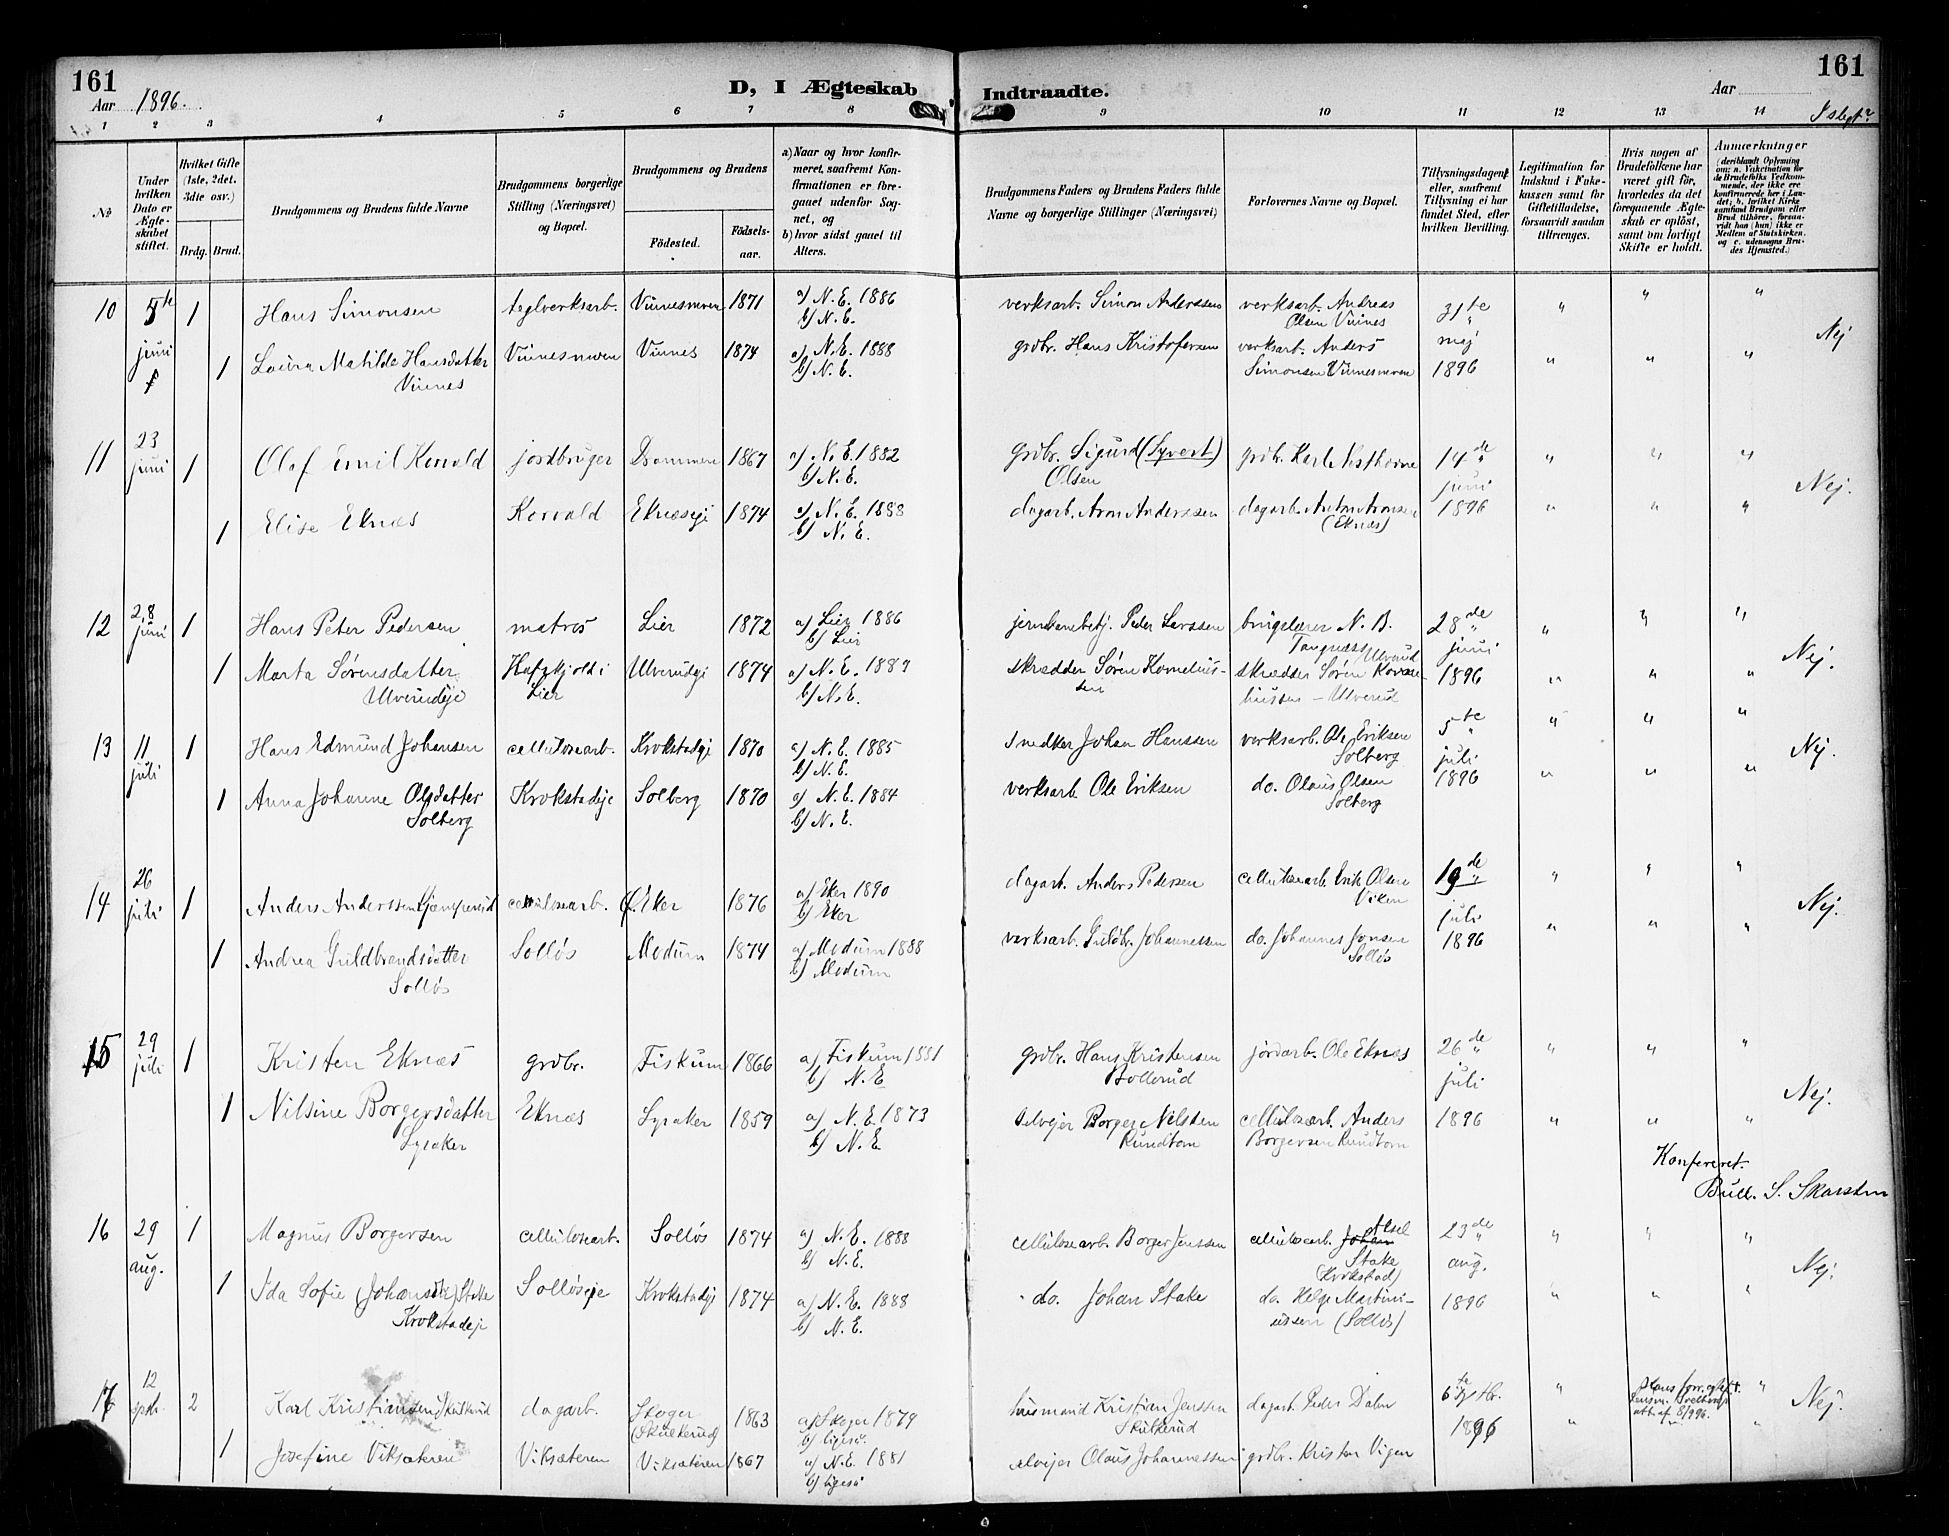 161
Aar 1896.
D, I Ægteskab Indtraadte.
Aar
161
1 2 3 4 5 6 7 8 9 10 11 12 13 14
I slegt?
№
Under hvilken Dato er Ægteskabet stiftet.
Hvilket Gifte (1ste, 2det, 3die osv.)
Brdg. Brud.
Brudgommens og Brudens fulde Navne
Brudgommens borgerlige Stilling (Næringsvei) og Bopæl.
Brudgommens og Brudens
Födested.
Födselsaar.
a) Naar og hvor konfirmeret, saafremt Konfirmationen er foregaaet udenfor Sognet, og
b) hvor sidst gaaet til Alters.
Brudgommens Faders og Brudens Faders fulde Navne og borgerlige Stillinger (Næringsvei)
Forlovernes Navne og Bopæl.
Tillysningsdagene eller, saafremt Tillysning ei har fundet Sted, efter hvilken Bevilling.
Legitimation for Indskud i Enkekassen samt for Giftetilladelse, forsaavidt saadan tiltrænges.
Hvis nogen af Brudefolkene har været gift för, hvorledes da det foregaaende Ægteskab er oplöst, samt om lovligt Skifte er holdt.
Anmærkninger
10 5te juni 1 Hans Simonsen teglverksarb. Vinnesmoren 1871 a) N. E. 1886 b) N. E. verksarb. Simon Anderssen verksarb. Andreas Olsen Vinnes 31te mej 1896 " " "
1 Laura Matilde Hansdatter Vinnes Vinnesmoren Vinnes 1874 a) N. E. 1888 b) N. E. grdbr. Hans Kristofersen verksarb. Anders Simonsen Vinnesmoren " " " Nej
11 23 juni 1 Olaf Emil Korvald jordbruger Drammen 1867 a) N. E. 1882 b) N. E. grdbr. Sigurd (Syvert) Olsen grdbr. Karl 14de juni 1896 " " "
1 Elise Eknæs Korvald Eknæseje 1874 a) N. E. 1888 b) N. E. dagarb. Aron Anderssen dagarb. Anton Aronsen (Eknæs) " " " Nej.
12 28 juni 1 Hans Peter Pedersen matros Lier 1872 a) Lier 1886 b) Lier Peder Larssen N. B. Tangnæss Ulverud 28de juni 1896 " " "
1 Marta Sørensdatter Ulverudeje Lier Ulverudeje 1874 a) N. E. 1889 b) N. E. skrædder Søren Kornelius-sen skrædder Søren Ulverud " " " Nej.
13 11 juli 1 Hans Edmund Johansen cellulosearb. Krokstadeje 1870 a) N. E. 1885 b) N. E. Snedker Johan Hanssen verksarb. Ole Eriksen Solberg 5te juli 1896 " " "
1 Anna Johanne Olsdatter Solberg Krokstadeje Solberg 1870 a) N. E. 1884 b) N. E. verksarb. Ole Eriksen do. Olaus Olsen Solberg " " " Nej.
14 26 juli 1 Anders Anderssen cellulosearb. Ø. Eker 1876 a) Eker 1890 b) Eker dagarb. Anders Pedersen cellulosearb. Erik Olsen Viken 19de juli 1896 " " "
1 Andrea Guldbrandsdatter Solløs Solløs Modum 1874 a) Modum 1888 b) Modum verksarb. Guldbr. Johannessen do. Johannes Jonsen Solløs " " " Nej.
15 29 juli 1 Kristen Eknæs grdbr. Fiskum 1866 a) Fiskum 1881 b) N. E grdbr. Hans Kristensen Bollerud jordarb. Ole Eknæs 26de juli 1896 " " "
1 Nilsine Borgersdatter Lyraker Eknæs Lyraker 1859 a) N. E. 1873 b) N. E. selvejer Borger Nilssen Rundtom cellulosearb. Anders Borgersen Rundtom " " " Nej.
Konfereret.
Bull. S. Skarsten
16 29 aug. 1 Magnus Borgersen cellulosearb. Solløs 1874 a) N. E. 1888 b) N. E. cellulosearb. Borger Jenssen cellulosearb. Axel Stake (Krokstad) 23de aug. 1896 " " "
1 Ida Sofie (Johansdtr) Stake Krokstadeje Solløseje Krokstadeje 1874 a) N. E. 1888 b) N. E. do. Johan Stake do. Helge Martini-ussen (Solløs) " " " Nej.
17 12 sptbr. 2 Karl Kristiansen Skulkerud dagarb. Skoger (Skulkerud) 1863 a) Skoger 1879 b) ligeså. husmand Kristian Jenssen Skulkerud dagarb. Peder Dalen 6te sptbr. 1896 " 8/9 96. "
1 Josefine Viksæteren Viksæteren Viksæteren 1867 a) N. E. 1881 b) ligeså selvejer Olaus Johannessen grdbr. Kristen Vigen " " Nej.